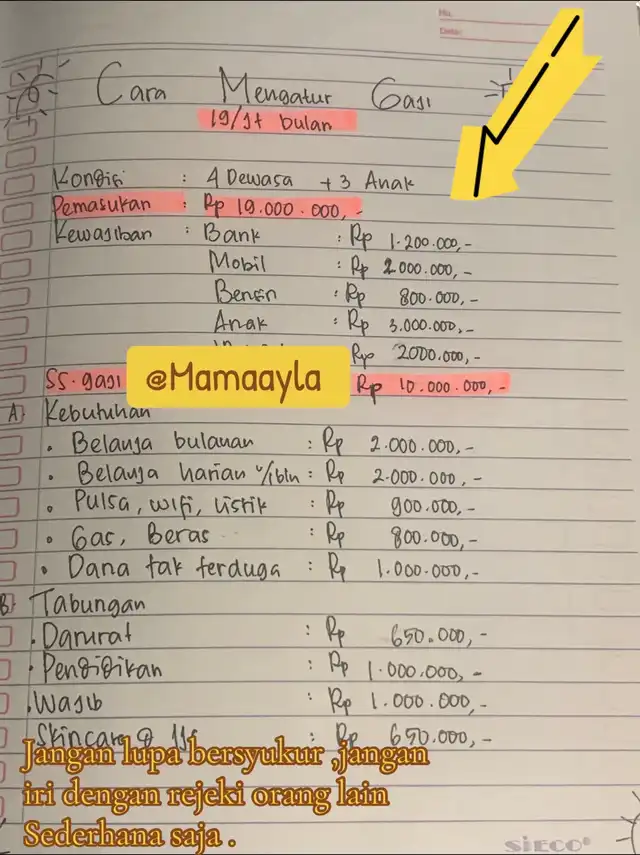 No.
Date:
Cara Mengatur Gaji
19/jt bulan
Kondisi : 4 Dewasa + 3 Anak
Pemasukan : Rp 19.000.000,-
Kewajiban : Bank : Rp 1.200.000,-
Mobil : Rp 2.000.000,-
Bensin : Rp 800.000,-
Anak : Rp 3.000.000,-
Rp 2000.000,-
SS. gaji @Mamaayla Rp 10.000.000,-
A) Kebutuhan
• Belanja bulanan : Rp 2.000.000,-
• Belanja harian u/bln : Rp 2.000.000,-
• Pulsa, wifi, listik : Rp 900.000,-
• Gas, Beras : Rp 800.000,-
• Dana tak terduga : Rp 1.000.000,-
B) Tabungan
• Darurat : Rp 650.000,-
• Pendidikan : Rp 1.000.000,-
• Wajib : Rp 1.000.000,-
Skincare : Rp 650.000,-
Jangan lupa bersyukur ,jangan
iri dengan rejeki orang lain
Sederhana saja .
SiECO